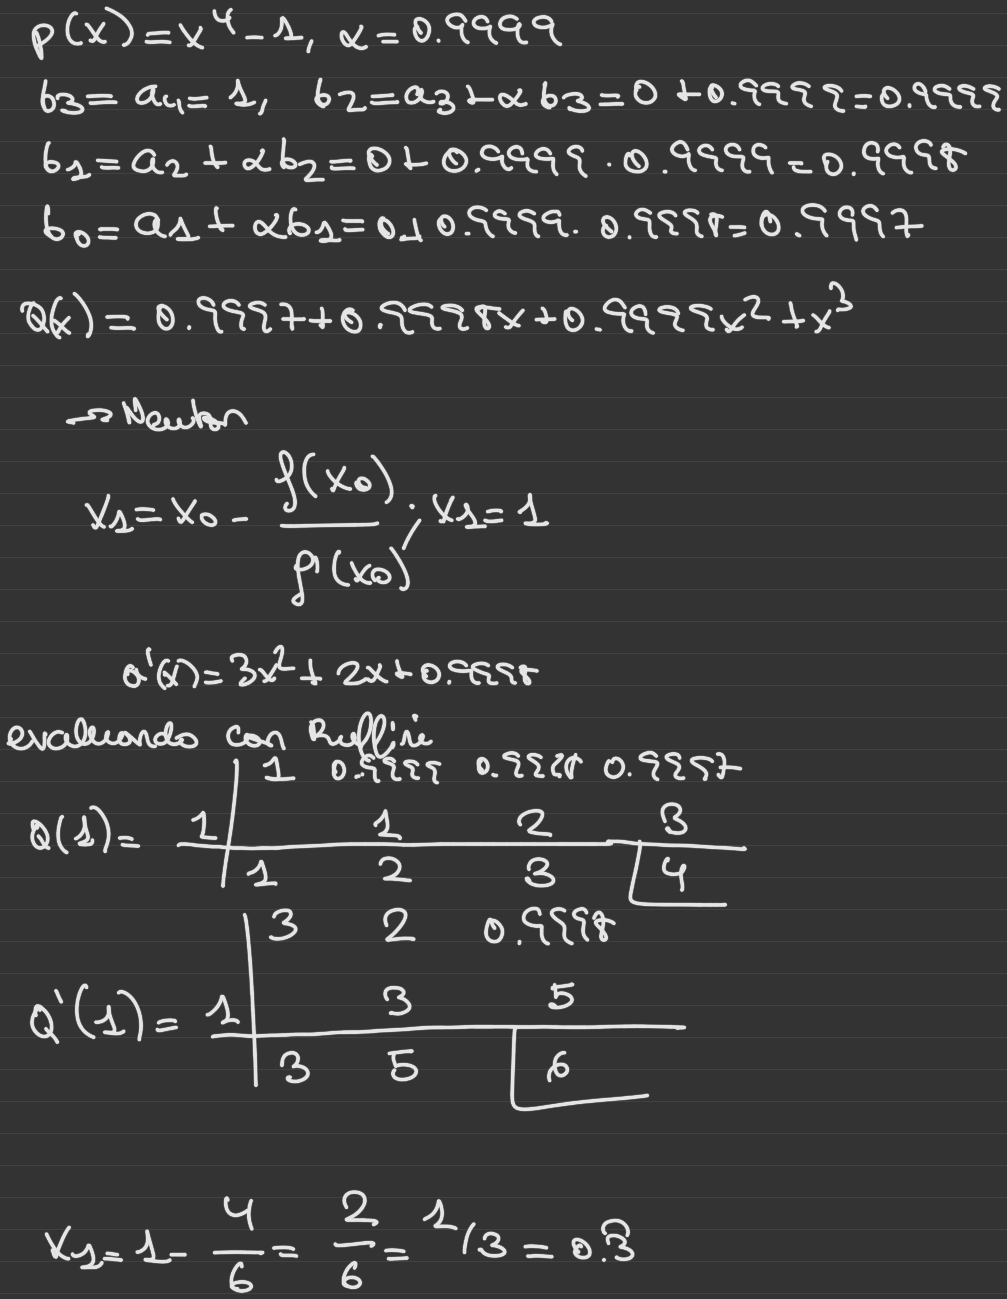 p(x)=x⁴-1, α=0.9999
b3=a4=1, b2=a3+αb3=0+0.9999=0.9999
b1=a2+αb2=0+0.9999·0.9999=0.9998
b0=a1+αb1=0+0.9999·0.9998=0.9997
Q(x)=0.9997+0.9998x+0.9999x²+x³
→ Newton
x1=x0-f(x0)/f'(x0); x1=1
Q'(x)=3x²+2x+0.9998
evaluando con Ruffini
1 0.9999 0.9998 0.9997
Q(1)= 1 1 2 3
1 2 3 4
3 2 0.9998
Q'(1)= 1 3 5
3 5 6
x1=1-4/6=2/6=1/3=0.3̂